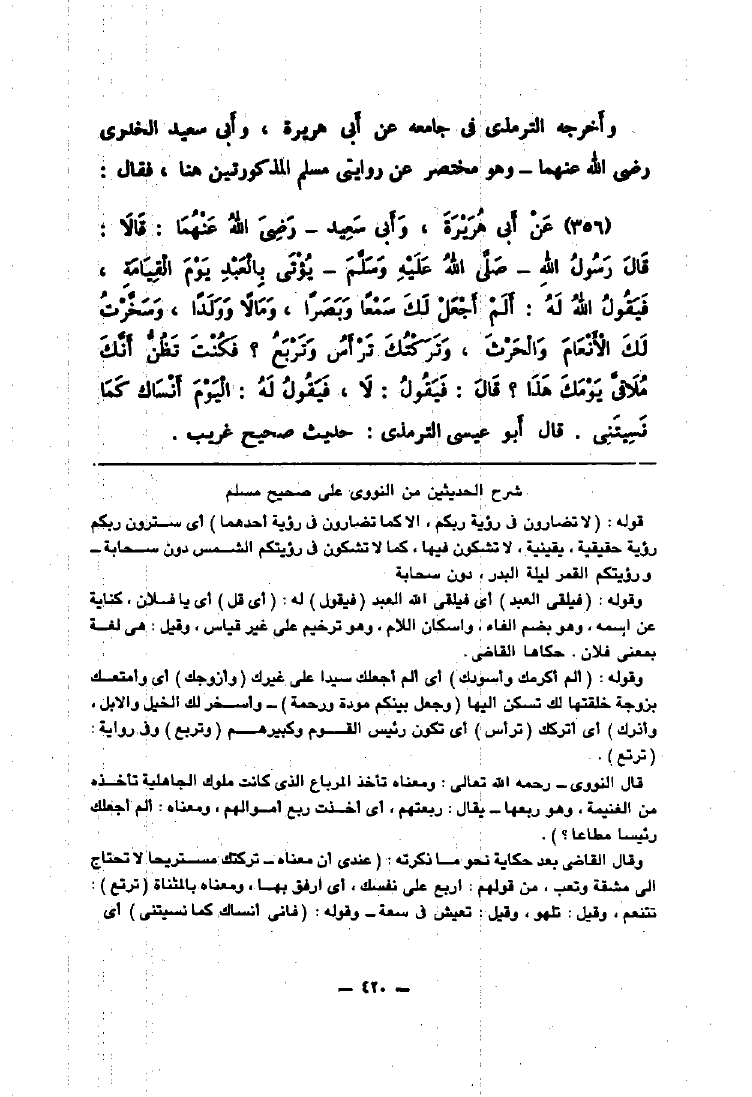 وأخرجه الترمذى فى جامعه عن أبى هريرة ، وأبى سعيد الخدرى
رضى الله عنهما ـ وهو مختصر عن روايتى مسلم المذكورتين هنا ، فقال :
(٣٥٦) عَنْ أَبِى هُرَيْرَةَ ، وَأَبى سَعِيد ـ رَضِىَ اللهُ عَنْهُمَا : قَالَا :
قَالَ رَسُولُ اللهِ ـ صَلَّى اللهُ عَلَيْهِ وَسَلَّمَ ـ يُؤْتَى بِالْعَبْدِ يَوْمَ الْقِيَامَةِ ،
فَيَقُولُ اللهُ لَهُ : أَلَمْ أَجْعَلْ لَكَ سَمْعًا وَبَصَرًا ، وَمَالًا وَوَلَدًا ، وَسَخَّرْتُ
لَكَ الْأَنْعَامَ وَالْحَرْثَ ، وَتَرَكْتُكَ تَرْأَسُ وَتَرْبَعُ ؟ فَكُنْتَ تَظُنُّ أَنَّكَ
مُلَاقِىَّ يَوْمَكَ هَذَا ؟ قَالَ : فَيَقُولُ : لَا ، فَيَقُولُ لَهُ : الْيَوْمَ أَنْسَاكَ كَمَا
نَسِيتَنِى . قال أبو عيسى الترمذى : حديث صحيح غريب .
شرح الحديثين من النووى على صحيح مسلم
قوله : ( لا تضارون فى رؤية ربكم ، الا كما تضارون فى رؤية أحدهما ) أى سترون ربكم
رؤية حقيقية ، يقينية ، لا تشكون فيها ، كما لا تشكون فى رؤيتكم الشمس دون سحابة ـ
ورؤيتكم القمر ليلة البدر ، دون سحابة
وقوله : ( فيلقى العبد ) أى فيلقى الله العبد ( فيقول ) له : ( أى قل ) أى يا فلان ، كناية
عن اسمه ، وهو بضم الفاء ، واسكان اللام ، وهو ترخيم على غير قياس ، وقيل : هى لغة
بمعنى فلان . حكاها القاضى .
وقوله : ( ألم أكرمك وأسودك ) أى ألم أجعلك سيدا على غيرك ( وأزوجك ) أى وأمتعك
بزوجة خلقتها لك تسكن اليها ( وجعل بينكم مودة ورحمة ) ـ وأسخر لك الخيل والابل ،
وأذرك ) أى أتركك ( ترأس ) أى تكون رئيس القوم وكبيرهم ( وتربع ) وفى رواية :
( ترتع ) .
قال النووى ـ رحمه الله تعالى : ومعناه تأخذ المرباع الذى كانت ملوك الجاهلية تأخذه
من الغنيمة ، وهو ربعها ـ يقال : ربعتهم ، أى أخذت ربع أموالهم ، ومعناه : ألم أجعلك
رئيسا مطاعا ؟ ) .
وقال القاضى بعد حكاية نحو ما ذكرته : ( عندى أن معناه ـ تركتك مستريحا لا تحتاج
الى مشقة وتعب ، من قولهم : أربع على نفسك ، أى ارفق بها ، ومعناه بالمثناة ( ترتع ) :
تتنعم ، وقيل : تلهو ، وقيل : تعيش فى سعة ـ وقوله : ( فانى أنساك كما نسيتنى ) أى
— ٤٢٠ —